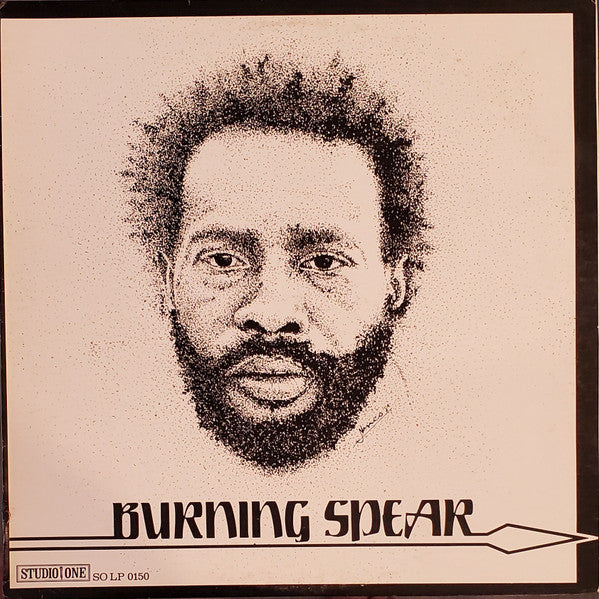 BURNING SPEAR
STUDIO ONE SO LP 0150